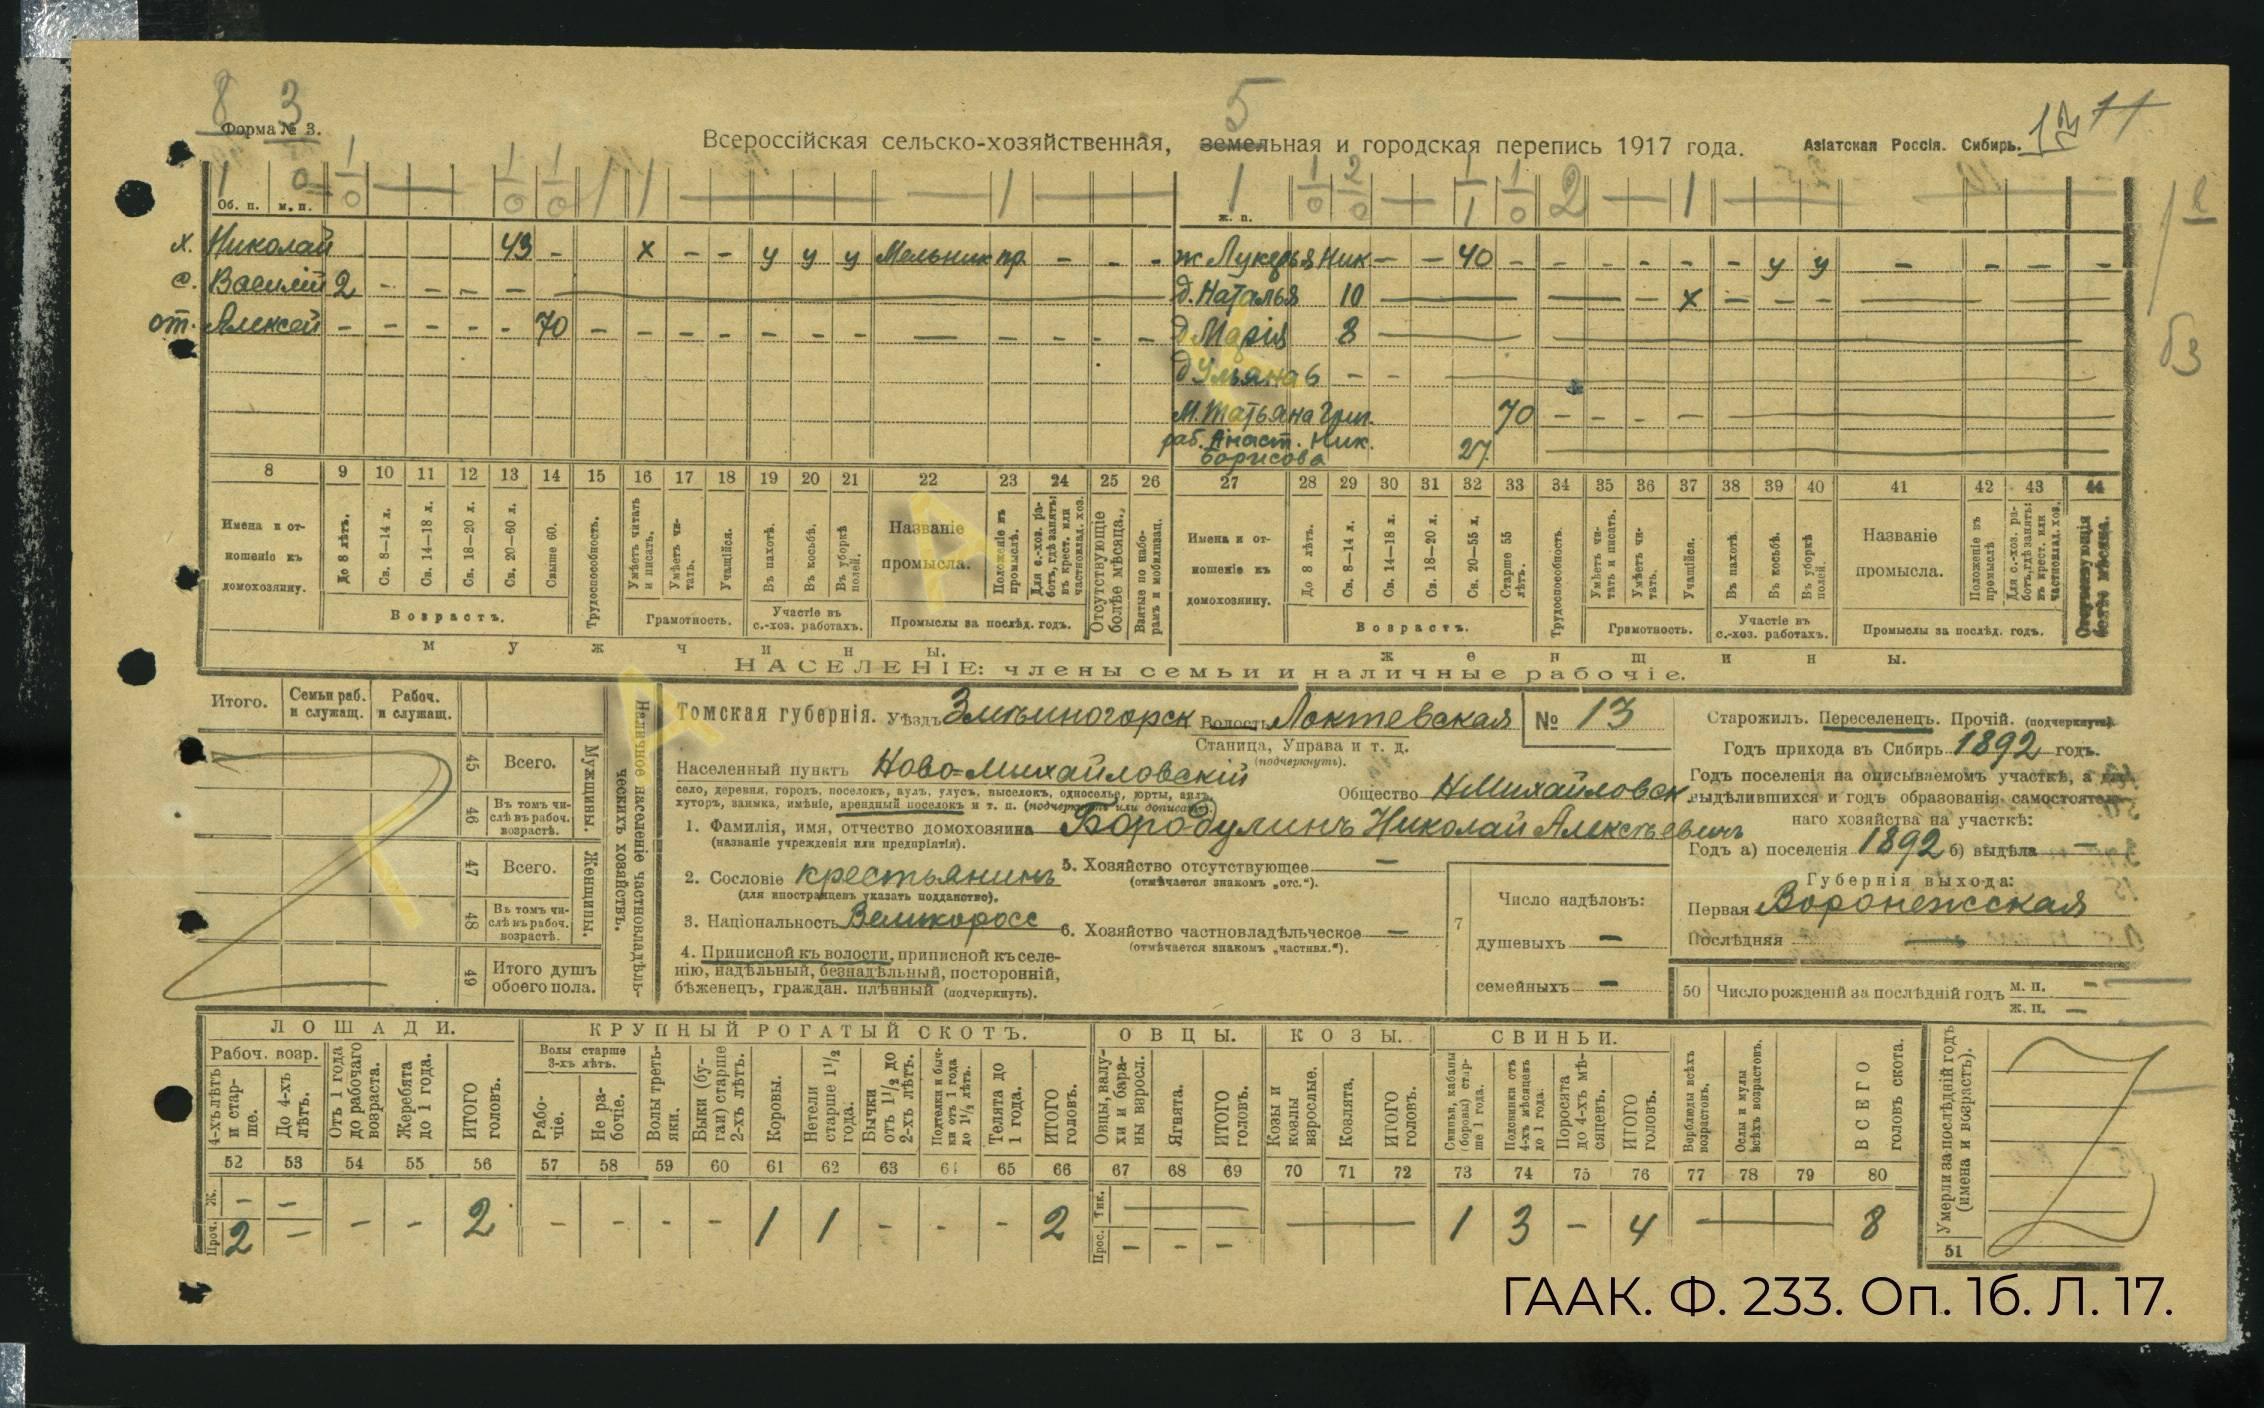 8 3
Форма № 3.
5
Всероссійская сельско-хозяйственная, земельная и городская перепись 1917 года.
Азіатская Россія. Сибирь.
Об. п. м. п.
ж. п.
х. Николай 43 - х - - у у у Мельник пр. - - -
ж Лукерья Ник - - 40 - - - - - - у у - - - -
с. Василій 2 - - - -
д. Наталья 10 - х - - -
от. Алексей - - - - - 70 - - - - - - - - - - - - -
д Марія 8
д Ульяна 6 - -
м. Татьяна Григ. 70 - - - -
раб. Анаст. Ник. 27
Борисова
8 9 10 11 12 13 14 15 16 17 18 19 20 21 22 23 24 25 26 27 28 29 30 31 32 33 34 35 36 37 38 39 40 41 42 43 44
Имена и отношеніе къ домохозяину.
До 8 лѣтъ.
Св. 8—14 л.
Св. 14—18 л.
Св. 18—20 л.
Св. 20—60 л.
Свыше 60.
Возрастъ.
Трудоспособность.
Умѣетъ читать и писать.
Умѣетъ читать.
Учащійся.
Грамотность.
Въ пахотѣ.
Въ косьбѣ.
Въ уборкѣ полей.
Участіе въ с.-хоз. работахъ.
Названіе промысла.
Положеніе въ промыслѣ.
Для с.-хоз. работъ, гдѣ занятъ: въ крест. или частновлад. хоз.
Промыслы за послѣд. годъ.
Отсутствующіе болѣе мѣсяца.
Взятые по наборамъ и мобилизац.
Имена и отношеніе къ домохозяину.
До 8 лѣтъ.
Св. 8—14 л.
Св. 14—18 л.
Св. 18—20 л.
Св. 20—55 л.
Старше 55 лѣтъ.
Возрастъ.
Трудоспособность.
Умѣетъ читать и писать.
Умѣетъ читать.
Учащійся.
Грамотность.
Въ пахотѣ.
Въ косьбѣ.
Въ уборкѣ полей.
Участіе въ с.-хоз. работахъ.
Названіе промысла.
Положеніе въ промыслѣ
Для с.-хоз. работъ, гдѣ заняты: въ крест. или частновлад. хоз.
Промыслы за послѣд. годъ.
Отсутствующія болѣе мѣсяца.
мужчины.
женщины.
НАСЕЛЕНІЕ: члены семьи и наличные рабочіе.
Итого.
Семьи раб. и служащ.
Рабоч. и служащ.
45 Всего.
46 Въ томъ числѣ въ рабоч. возрастѣ.
Мужчины.
47 Всего.
48 Въ томъ числѣ въ рабоч. возрастѣ.
Женщины.
49 Итого душъ обоего пола.
Наличное населеніе частновладѣльческихъ хозяйствъ.
Томская губернія. Уѣздъ Змѣиногорск Волость Локтевская
Станица, Управа и т. д.
(подчеркнуть).
№ 13
Населенный пунктъ Ново-Михайловскій
село, деревня, городъ, поселокъ, аулъ, улусъ, выселокъ, односелье, юрты, аилъ,
хуторъ, заимка, имѣніе, арендный поселокъ и т. п. (подчеркнуть или дописать).
Общество НМихайловск.
1. Фамилія, имя, отчество домохозяина Бородулинъ Николай Алексѣевичъ
(названіе учрежденія или предпріятія).
2. Сословіе крестьянинъ
(для иностранцевъ указать подданство).
3. Національность Великоросс
4. Приписной къ волости, приписной къ селе-
нію, надѣльный, безнадѣльный, посторонній,
бѣженецъ, граждан. плѣнный (подчеркнуть).
5. Хозяйство отсутствующее —
(отмѣчается знакомъ „отс.").
6. Хозяйство частновладѣльческое —
(отмѣчается знакомъ „частвл.").
7 Число надѣловъ:
душевыхъ —
семейныхъ —
Старожилъ. Переселенецъ. Прочій. (подчеркнуть).
Годъ прихода въ Сибирь 1892 годъ.
Годъ поселенія на описываемомъ участкѣ, а для
выдѣлившихся и годъ образованія самостоятель-
наго хозяйства на участкѣ:
Годъ а) поселенія 1892 б) выдѣла —
Губернія выхода:
Первая Воронежская
Послѣдняя —
50 Число рожденій за послѣдній годъ м. п. —
ж. п. —
ЛОШАДИ.
КРУПНЫЙ РОГАТЫЙ СКОТЪ.
ОВЦЫ.
КОЗЫ.
СВИНЬИ.
Рабоч. возр.
4-хъ лѣтъ и старше.
До 4-хъ лѣтъ.
Отъ 1 года до рабочаго возраста.
Жеребята до 1 года.
ИТОГО головъ.
Волы старше 3-хъ лѣтъ.
Рабочіе.
Не рабочіе.
Волы третьяки.
Быки (бугаи) старше 2-хъ лѣтъ.
Коровы.
Нетели старше 1 1/2 года.
Бычки отъ 1 1/2 до 2-хъ лѣтъ.
Подтелки и бычки отъ 1 года до 1 1/2 лѣтъ.
Телята до 1 года.
ИТОГО головъ.
Овцы, валухи и бараны взросл.
Ягнята.
ИТОГО головъ.
Козы и козлы взрослые.
Козлята.
ИТОГО головъ.
Свиньи, кабаны (боровы) старше 1 года.
Подсвинки отъ 4-хъ мѣсяцевъ до 1 года.
Поросята до 4-хъ мѣсяцевъ.
ИТОГО головъ.
Верблюды всѣхъ возрастовъ.
Ослы и мулы всѣхъ возрастовъ.
ВСЕГО головъ скота.
52 53 54 55 56 57 58 59 60 61 62 63 64 65 66 67 68 69 70 71 72 73 74 75 76 77 78 79 80
Ж. - -
Проч. 2 - - - 2 - - - - 1 1 - - - 2
Тик.
Прос. - - -
1 3 - 4 8
51 Умерли за послѣдній годъ (имена и возрастъ).
ГААК. Ф. 233. Оп. 1б. Л. 17.